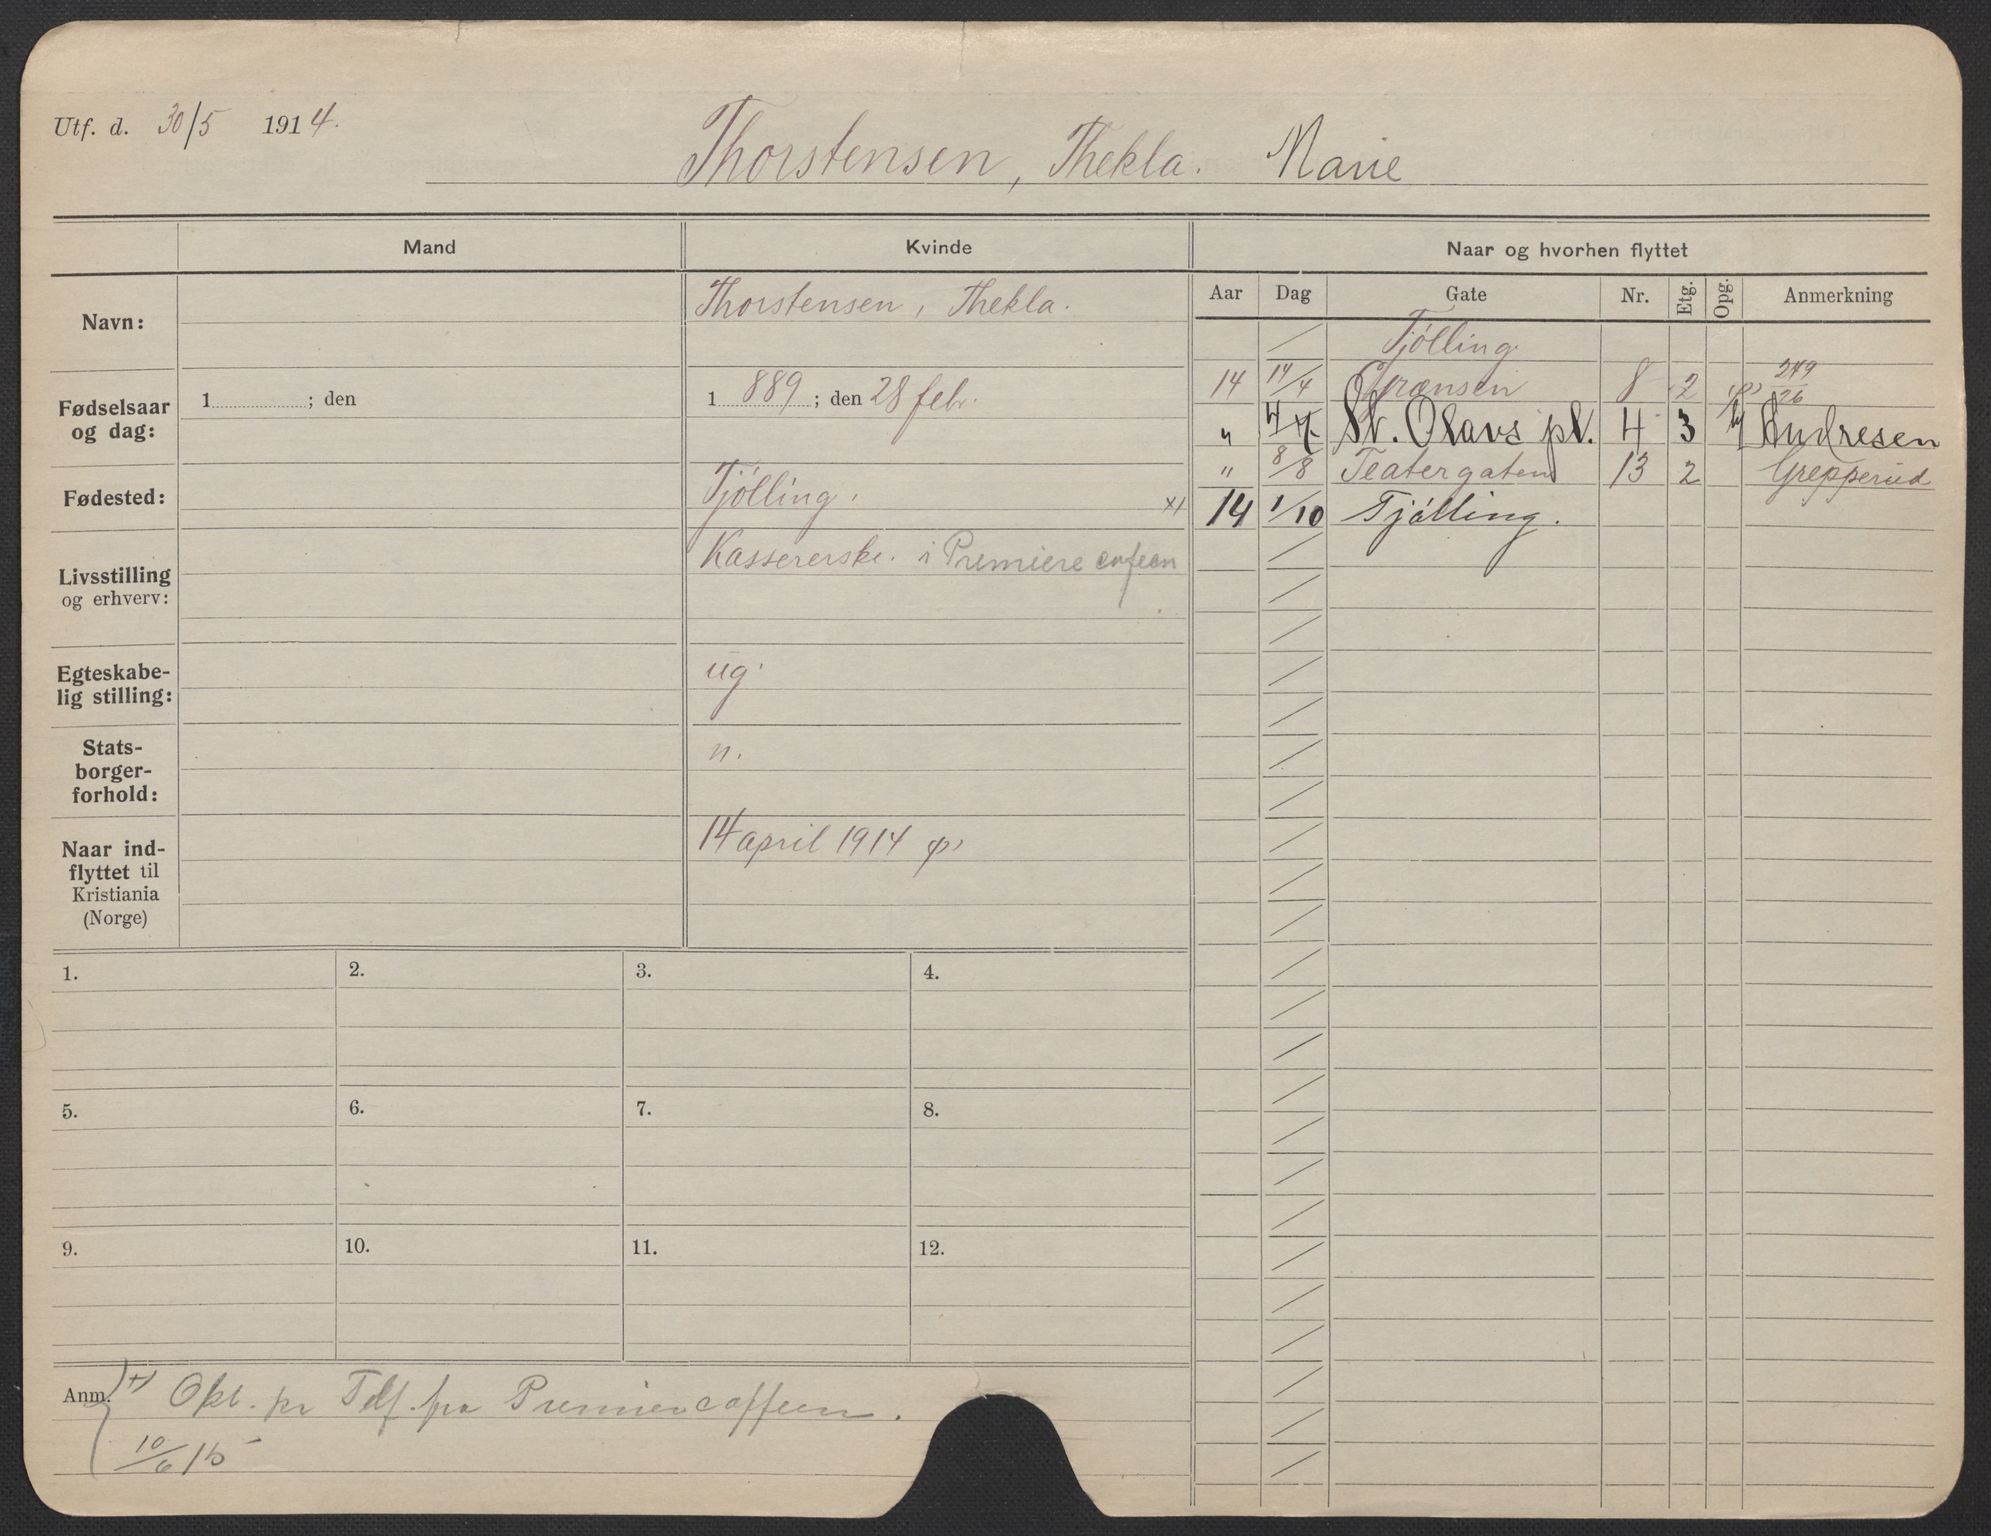 Utf. d. 30/5 1914.
Thorstensen, Thekla. Marie
Mand
Kvinde
Naar og hvorhen flyttet
Aar Dag Gate Nr. Etg. Opg. Anmerkning
Navn:
Thorstensen, Thekla.
Fødselsaar
og dag:
1 ; den
1 889 ; den 28 febr.
Fødested:
Tjölling.
Livsstilling
og erhverv:
Kassererske. i Premiere cafeen
Egteskabe-
lig stilling:
ug.
Stats-
borger-
forhold:
n.
Naar ind-
flyttet til
Kristiania
(Norge)
14 april 1914
Tjölling.
14 14/4 Grænsen 8 2 249/26
" St. Olavs pl. 4 3 Andresen
" 8/8 Teatergaten 13 2 Grepperud
x) 14 1/10 Tjölling.
1. 2. 3. 4.
5. 6. 7. 8.
9. 10. 11. 12.
Anm. x) Opl. pr Telf. fra Premierecaffeen.
10/6 15